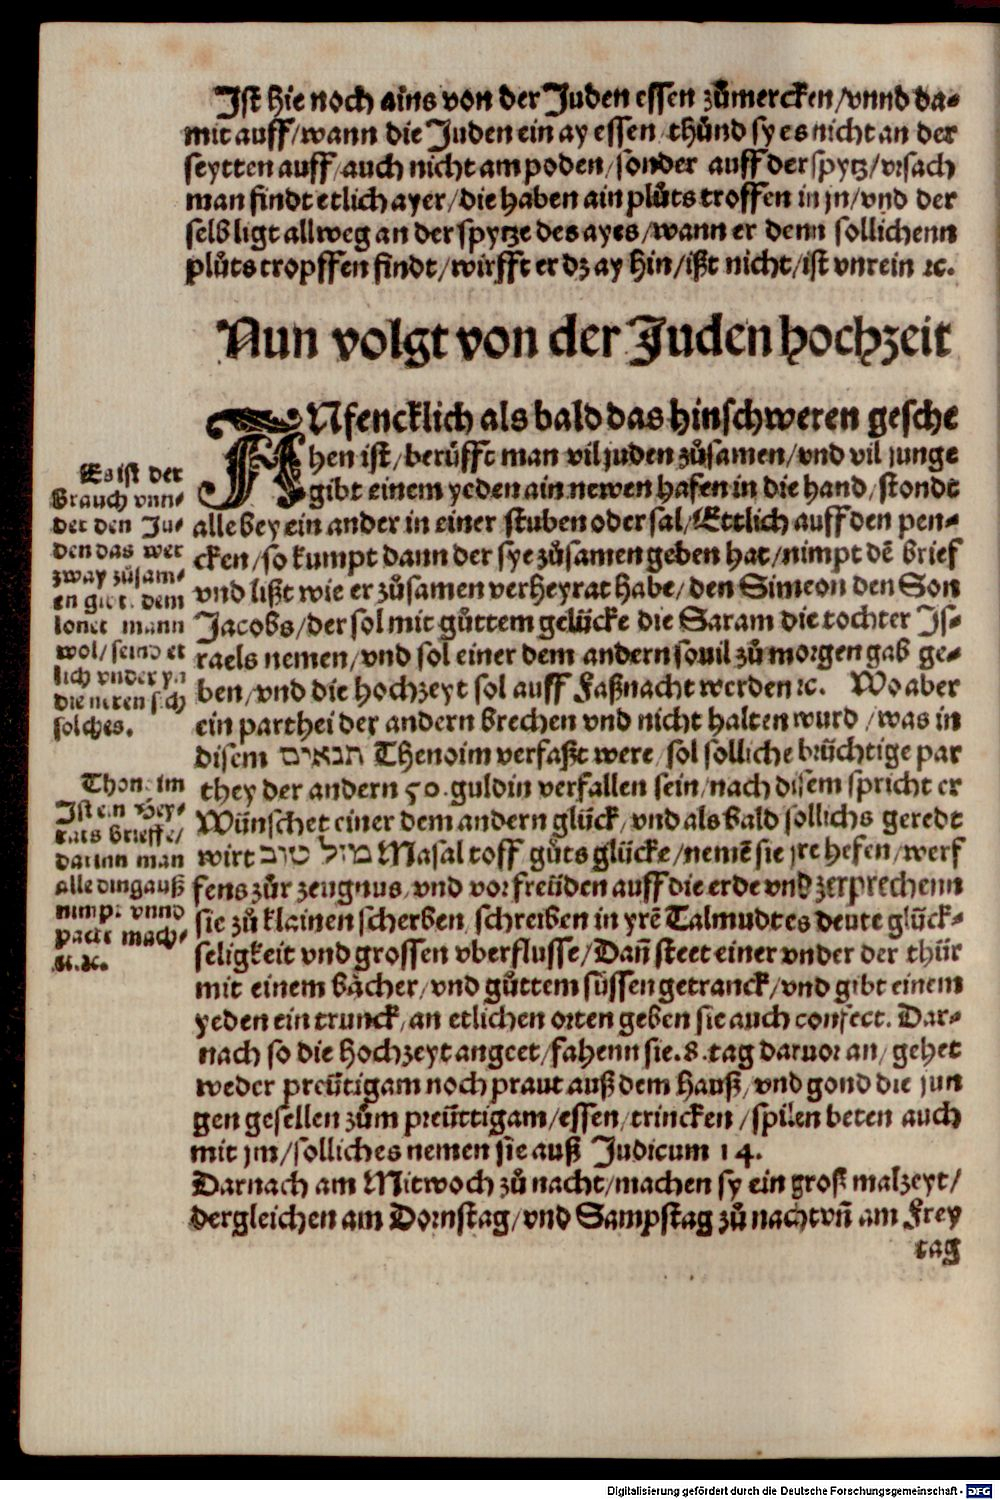 Ist hie noch ains von der Juden essen zůmercken/vnnd da-
mit auff/wann die Juden ein ay essen/thůnd sy es nicht an der
seytten auff/auch nicht am poden/sonder auff der spytz/vrsach
man findt etlich ayer/die haben ain plůts troffen in jn/vnd der
selb ligt allweg an der spytze des ayes/wann er denn sollichenn
plůts tropffen findt/wirfft er dz ay hin/ißt nicht/ist vnrein ꝛc.
Nun volgt von der Juden hochzeit
ANfencklich als bald das hinschweren gesche
hen ist/berüfft man vil juden zůsamen/vnd vil junge
gibt einem yeden ain newen hafen in die hand/stondt
alle bey ein ander in einer stuben oder sal/Ettlich auff den pen-
cken/so kumpt dann der sye zůsamen geben hat/nimpt dē brief
vnd lißt wie er zůsamen verheyrat habe/den Simeon den Son
Jacobs/der sol mit gůttem gelücke die Saram die tochter Is-
raels nemen/vnd sol einer dem andern souil zů morgen gab ge-
ben/vnd die hochzeyt sol auff Faßnacht werden ꝛc. Wo aber
ein parthei der andern brechen vnd nicht halten wurd/was in
disem תנאים Thenoim verfaßt were/sol solliche brüchtige par
they der andern 50. guldin verfallen sein/nach disem spricht er
Wünschet einer dem andern glück/vnd als bald sollichs geredt
wirt מזל טוב Masal toff gůts glücke/nemē sie jre hefen/werf
fens zůr zeugnus/vnd vor freüden auff die erde vnd zerprechenn
sie zů klainen scherben/schreiben in yrē Talmudt es deute glück-
seligkeit vnd grossen vberflusse/Dañ steet einer vnder der thür
mit einem bächer/vnd gůttem süssen getranck/vnd gibt einem
yeden ein trunck/an etlichen orten geben sie auch confect. Dar-
nach so die hochzeyt angeet/fahenn sie .8. tag daruor an/gehet
weder preütigam noch praut auß dem hauß/vnd gond die jun
gen gesellen zům preüttigam/essen/trincken/spilen beten auch
mit jm/solliches nemen sie auß Judicum 14.
Darnach am Mitwoch zů nacht/machen sy ein groß malzeyt/
dergleichen am Dornstag/vnd Sampstag zů nacht vñ am Frey
tag
Es ist der
Brauch vnn-
der den Ju-
den das wer
zway zůsam-
en gibt. dem
lonet mann
wol/seind et
lich vnder yn
die neren sich
solches.
Thenoim
Ist ein Hey-
rats brieffe/
darinn man
alle ding auß
nimpt vnnd
pactt mach-
et.ꝛc.
Digitalisierung gefördert durch die Deutsche Forschungsgemeinschaft - DFG